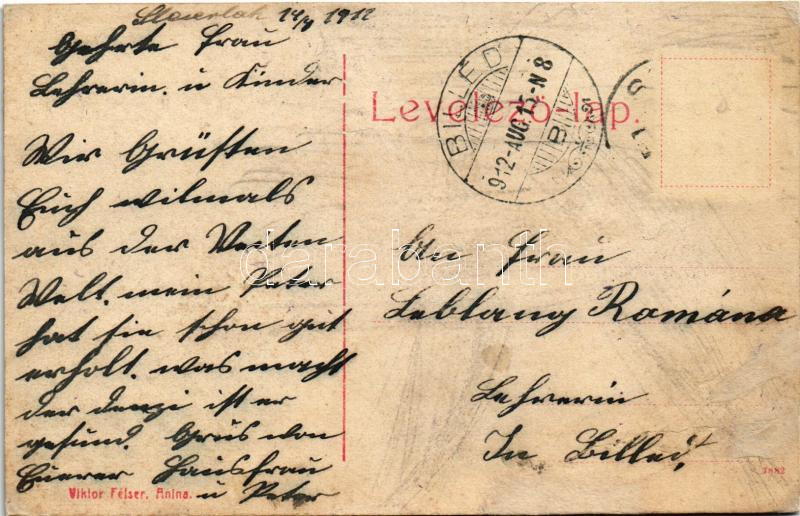 Staierlak 14/8 1912
Gehrte Frau
Lehrerin. u Kinder
Wir Grüsten
Euch vilmals
aus der Veiten
Welt. mein Peter
hat sie schon gut
erholt. was macht
der denzi ist er
gesund. Grus von
Euerer Hausfrau
u Peter
Viktor Felser, Anina.
Levelező-lap.
BILLÉD
912-AUG.15-N8
B
An Frau
Leblang Romána
Lehrerin
In Billed,
7882
darabanth